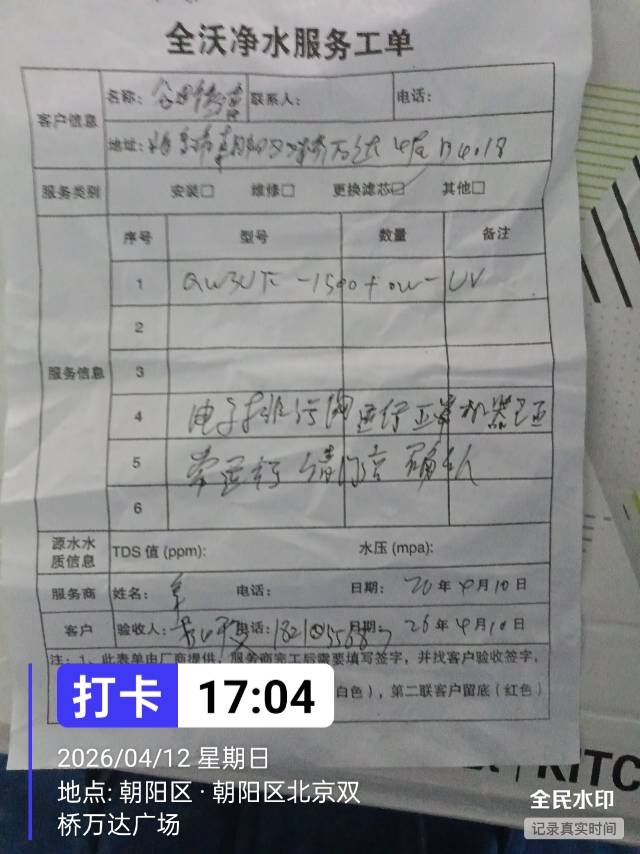 全沃净水服务工单
客户信息 名称: 联系人: 电话:
地址: 朝阳区 桥万达
服务类别 安装□ 维修□ 更换滤芯☑ 其他□
服务信息 序号 型号 数量 备注
1 -1500+ UV
2
3
4 电子排污阀运行正常机器正
5 常运行 请 确认
6
源水水质信息 TDS 值 (ppm): 水压 (mpa):
服务商 姓名: 电话: 日期: 年4月10日
客户 验收人: 电话: 日期: 26年4月10日
注: 1、此表单由厂商提供，服务商完工后需要填写签字，并找客户验收签字，
白色），第二联客户留底（红色）
打卡 17:04
2026/04/12 星期日
地点: 朝阳区 · 朝阳区北京双
桥万达广场
KITC
全民水印
记录真实时间